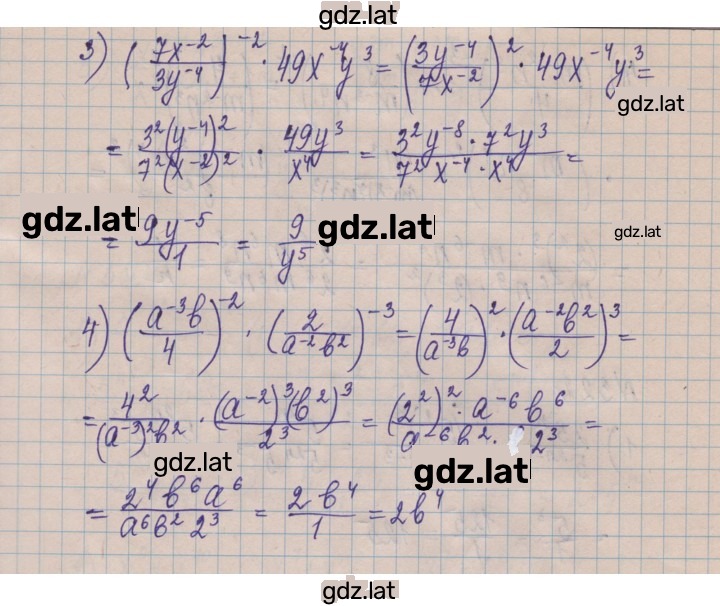 gdz.lat
3) (7x⁻²/3y⁻⁴)⁻² · 49x⁻⁴y³ = (3y⁻⁴/7x⁻²)² · 49x⁻⁴y³ =
gdz.lat
= 3²(y⁻⁴)²/7²(x⁻²)² · 49y³/x⁴ = 3²y⁻⁸ · 7²y³/7² x⁻⁴ · x⁴ =
gdz.lat gdz.lat gdz.lat
= 9y⁻⁵/1 = 9/y⁵
4) (a⁻³b/4)⁻² · (2/a⁻²b²)⁻³ = (4/a⁻³b)² · (a⁻²b²/2)³ =
= 4²/(a⁻³)²b² · (a⁻²)³(b²)³/2³ = (2²)² · a⁻⁶ b⁶/a⁻⁶ b² · 2³ =
gdz.lat gdz.lat
= 2⁴ b⁶ a⁶/a⁶b² 2³ = 2 b⁴/1 = 2b⁴
gdz.lat